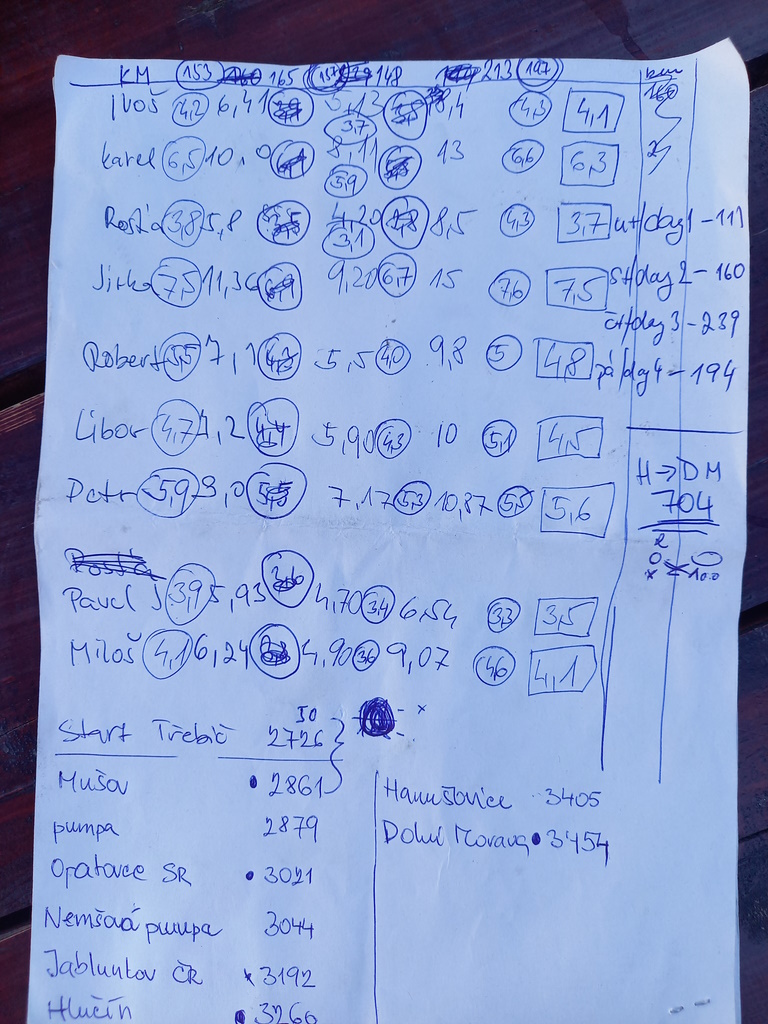 KM 153 165 137 148 213 197
Ivoš 4,2 6,41 5,13 3,7 8,4 4,3 4,1
160
Karel 6,5 10,0 8,11 5,9 13 6,6 6,3
Rosťa 3,8 5,8 4,20 3,1 8,5 4,3 3,7
út/day 1 - 111
Jirka 7,5 11,36 9,20 6,7 15 7,6 7,5
st/day 2 - 160
čt/day 3 - 239
Robert 5,5 7,1 5,5 4,0 9,8 5 4,8
pá/day 4 - 194
Libor 4,7 7,2 5,90 4,3 10 5,1 4,5
Petr 5,9 9,0 7,17 5,3 10,87 5,5 5,6
H → DM
704
Pavel J 3,9 5,93 4,70 3,4 6,54 3,3 3,5
Miloš 4,1 6,24 4,90 3,6 9,07 4,6 4,1
Start Třebíč 2726
Mušov • 2861
pumpa 2879
Opatovce SR • 3021
Nemšová pumpa 3044
Jablunkov ČR x 3192
Hlučín • 3260
Hanušovice 3405
Dolní Morava • 3454